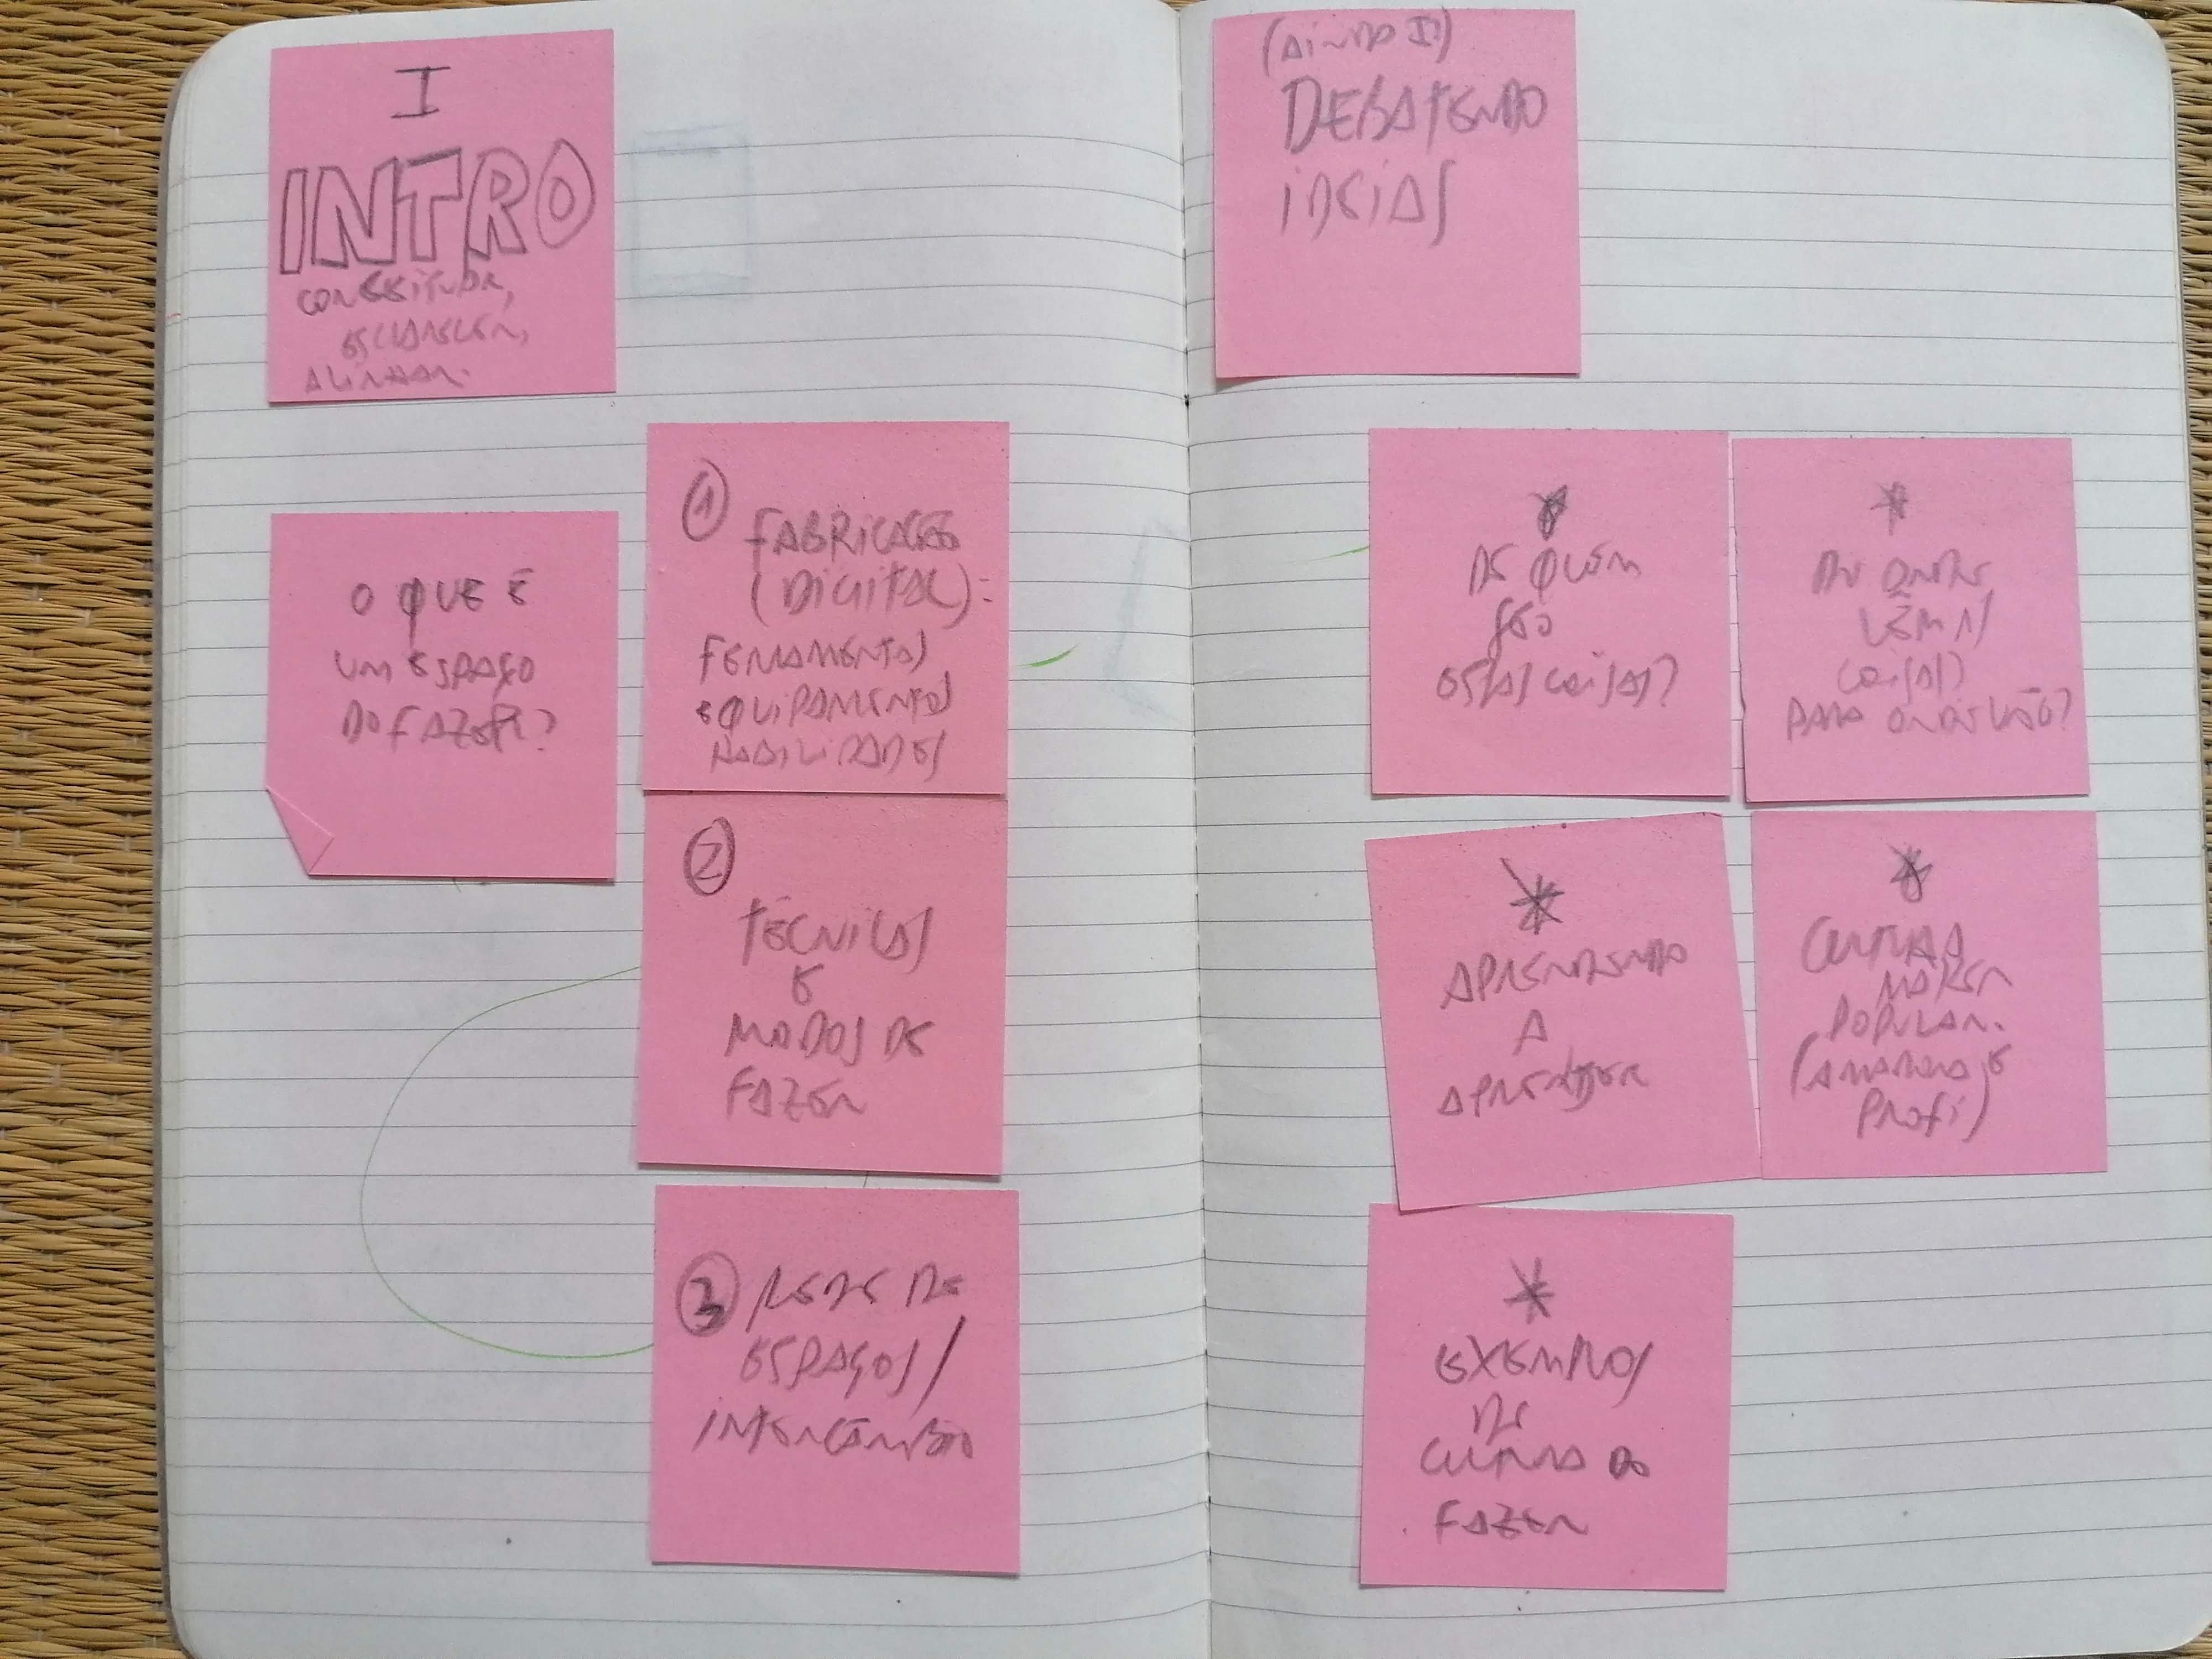 I
INTRO
CONCEITUAR,
ESCLARECER,
ALINHAR.
O QUE É
UM ESPAÇO
DO FAZER?
1
FABRICAÇÃO
(DIGITAL):
FERRAMENTAS
EQUIPAMENTOS
HABILIDADES
2
TÉCNICAS
E
MODOS DE
FAZER
3 REDE DE
ESPAÇOS/
INTERCÂMBIO
(AINDA I)
DEBATENDO
IDEIAS
*
DE QUEM
SÃO
ESTAS COISAS?
*
DE ONDE
VÊM AS
COISAS?
PARA ONDE VÃO?
*
APRENDENDO
A
APRENDER
*
CULTURA
MAKER
POPULAR.
(AMADORA E
PROFI)
*
EXEMPLOS
DE
CULTURA DO
FAZER